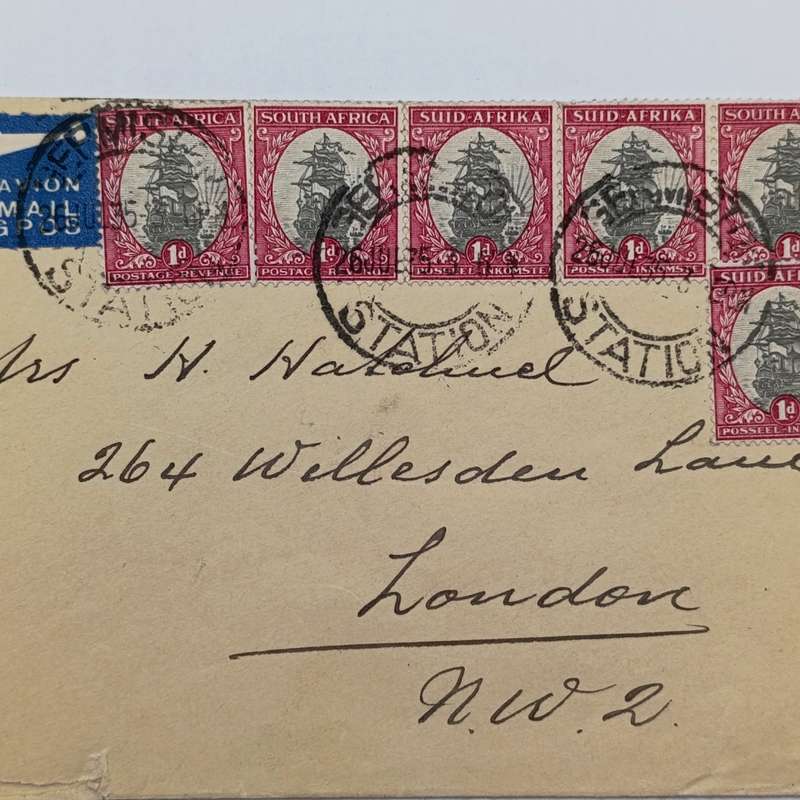 AVION
MAIL
GPOS
SOUTH AFRICA
1d
POSTAGE-REVENUE
SOUTH AFRICA
1d
POSTAGE-REVENUE
SUID-AFRIKA
1d
POSSEEL-INKOMSTE
SUID-AFRIKA
1d
POSSEEL-INKOMSTE
SOUTH A
1d
SUID-AFRI
1d
POSSEEL-IN
STATION
26 JUL 35
STATION
STATION
Mrs H.
264 Willesden Lane
London
N.W.2.